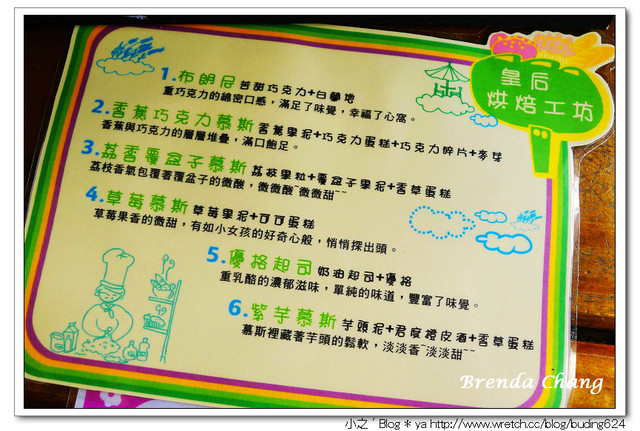 皇后
烘焙工坊
1.布朗尼 苦甜巧克力+白蘭地
重巧克力的綿密口感，滿足了味覺，幸福了心窩。
2.香蕉巧克力慕斯 香蕉果泥+巧克力蛋糕+巧克力碎片+麥芽
香蕉與巧克力的層層堆疊，滿口飽足。
3.荔香覆盆子慕斯 荔枝果粒+覆盆子果泥+香草蛋糕
荔枝香氣包覆著覆盆子的微酸，微微酸~微微甜~~
4.草莓慕斯 草莓果泥+可可蛋糕
草莓果香的微甜，有如小女孩的好奇心般，悄悄探出頭。
5.優格起司 奶油起司+優格
重乳酪的濃郁滋味，單純的味道，豐富了味覺。
6.紫芋慕斯 芋頭泥+君度橙皮酒+香草蛋糕
慕斯裡藏著芋頭的鬆軟，淡淡香~淡淡甜~~
Brenda Chang
小之ˊBlog * ya http://www.wretch.cc/blog/buding624